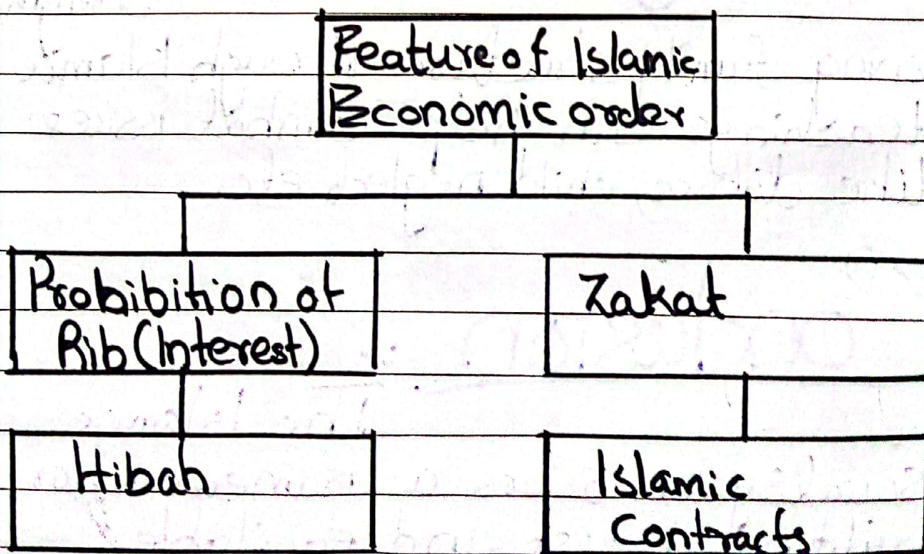 Feature of Islamic
Economic order
Probibition of
Rib (Interest)
Zakat
Hibah
Islamic
Contracts